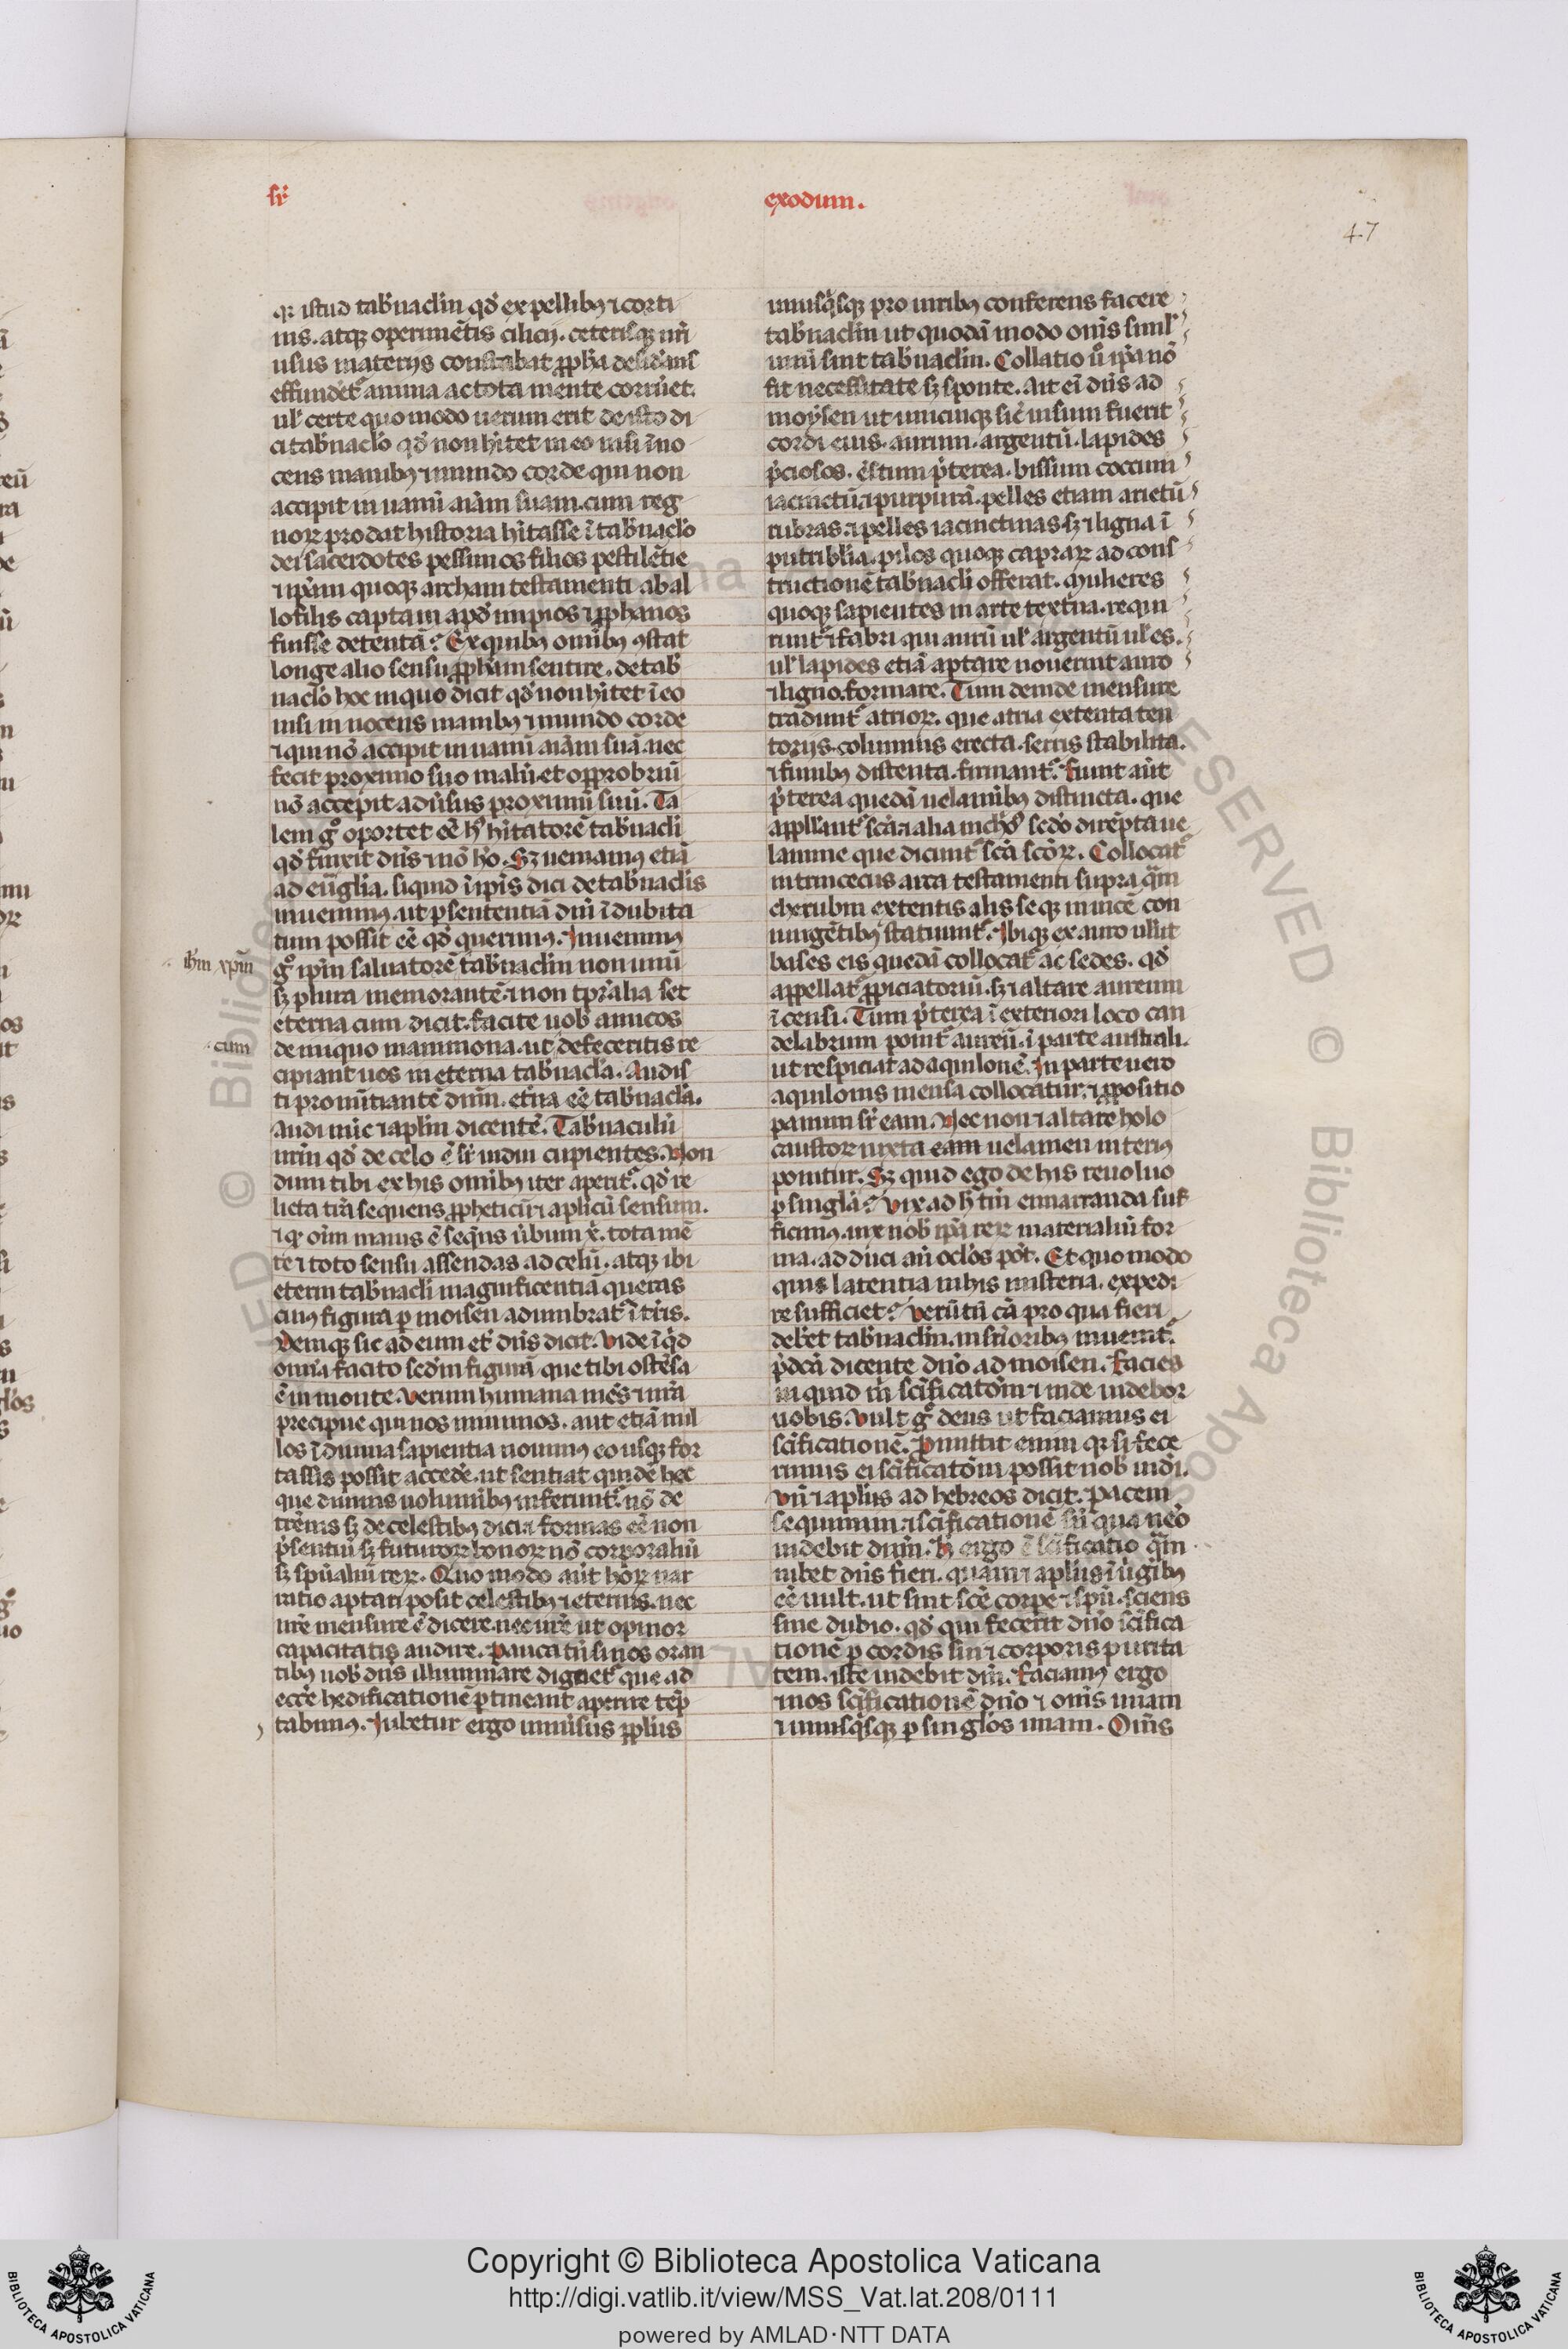 sr̄
exodum.
47
qꝛ istud tab̾nacl̄m qd̾ ex pellibꝰ ⁊ corti
nis. atqꝫ operimētis cilicij. ceterisqꝫ ur̄i
usus materijs constabat ꝓph̾a desid̾ans
effundet᷑ anima ac tota mente corruet.
ul̾ certe quo modo uerum erit de isto di
ci tab̾naclo qd̾ non h̾itet in eo nisi īno
cens manibꝰ ⁊ mundo corde qui non
accipit in uanū aīam suam. cum reg
noꝝ prodat historia h̾itasse ī tab̾naclo
dei sacerdotes pessimos filios pestilētie
⁊ ip̄am quoqꝫ archam testamenti ab al
lofilis captam apd̾ impios ⁊ ꝓphanos
fuisse detentā? Ex quibꝰ omibꝰ ꝯstat
longe alio sensu ꝓph̾am sentire. de tab̾
naclo hoc in quo dicit qd̾ non h̾itet ī eo
nisi innocens manibꝰ ⁊ mundo corde
⁊ qui nō accipit in uanū aīam suā. nec
fecit proximo suo malū. et opprobriū
nō accepit adūsus proximū suū. Ta
lem gͦ oportet eē hͦ h̾itatorē tab̾nacli
qd̾ finxit dn̄s ⁊ nō hō. Sꝫ ueniamꝰ etiā
ad eūglia. si quid ī ip̄is dici de tab̾naclis
inuenimꝰ. ut ꝑ sententiā dn̄i īdubita
tum possit eē qd̾ querimꝰ. Inuenimꝰ
ih̄m xp̄m
gͦ ip̄m saluatorē tab̾nacl̄m non unū
sꝫ plura memorantē. ⁊ non tp̄ralia set
eterna cum dicit. facite uob̾ amicos
cum
de iniquo mammona. ut defeceritis re
cipiant uos in eterna tab̾nacla. Audis
ti promittantē dn̄m. etn̄a eē tab̾nacla.
Audi nūc ⁊ apl̄m dicentē. Tab̾naculū
nr̄m qd̾ de celo ē sr̄ indui cupientes. Non
dum tibi ex his omibꝰ iter aperit᷑. qd̾ re
licta tr̄a sequens ꝓpheticū ⁊ aplicū sensum.
⁊ qͣ oīm maius ē seqns ūbum x̄. tota mē
te ⁊ toto sensu assendas ad celū. atqꝫ ibi
eterni tab̾nacli magnificentiā queras
cuiꝰ figura ꝑ moisen adumbrat᷑ ī tr̄is.
Deniqꝫ sic ad eum et dn̄s dicit. Vide īqd
omnia facito sed̾m figurā que tibi ostēsa
ē in monte. Verum humana mēs ⁊ nr̄a
precipue qui nos minimos. aut etiā nul
los ī diuina sapientia nouimꝰ eo usqꝫ for
tassis possit accede. ut sentiat quidē hec
que diuinis uoluminibꝰ inferunt᷑. nō de
trēnis sꝫ de celestibꝰ dici ⁊ formas eē non
p̄sentiū sꝫ futuroꝝ bonoꝝ nō corporaliū
sꝫ spūaliū reꝝ. Quo modo aūt hoꝝ nar
ratio aptari posit celestibꝰ ⁊ eternis. nec
nr̄e mensure ē dicere. nec ur̄e ut opinor
capacitatis audire. Pauca tn̄ si nos oran
tibꝰ uob̾ dn̄s illuminare dignet᷑ que ad
ecc̄e hedificationē ꝑtineant aperire tēp
tabimꝰ. Iubetur ergo uniūsus ꝓpl̄us
unusqisqꝫ pro uiribꝰ conferens facere
tab̾nacl̄m ut quodā modo om̄s simil̾
unū sint tab̾nacl̄m. Collatio ū ip̄a nō
fit necessitate sꝫ sponte. Ait eī dn̄s ad
moysen ut unicuiqꝫ sic̄ uisum fuerit
cordi eius. aurum. argentū. lapides
p̄ciosos. estum p̄terea. bissum coccum
iacinctū ⁊ purpurā. pelles etiam arietū
rubras ⁊ pelles iacinctinas. sꝫ ⁊ ligna ī
putribilia. pilos quoqꝫ capraꝝ ad cons
tructionē tab̾nacli offerat. Mulieres
quoqꝫ sapientes in arte textr̄ina. requi
runt᷑ ⁊ fabri qui aurū ul̾ argentū ul̾ es.
ul̾ lapides etiā aptare nouerint auro
⁊ ligno. formare. Tum deinde mensure
tradunt᷑ atrioꝝ. que atria extenta ten
torijs. columnis erecta. serris stabilita.
⁊ funibꝰ distenta. firmant᷑. Fiunt aūt
p̄terea quedā uelaminibꝰ distincta. que
appellant᷑ scā. ⁊ alia nichͦ secdo dirēpta ue
lamine que dicunt᷑ scā scōꝝ. Collocat᷑
intrincecus arca testamenti supra qͣm
cherubin extentis alis seqꝫ inuicē con
iungētibꝰ statuunt᷑. Ibiqꝫ ex auro uelut
bases eis quedā collocat᷑ ac sedes. qd̾
appellat᷑ ꝓpiciatoriū. sꝫ ⁊ altare aureum
īcensi. Tum p̄terea ī exteriori loco can
delabrum ponit᷑ aureū. ī parte australi.
ut respiciat ad aquilonē. In parte uero
aquilonis mensa collocatur. ⁊ ꝓpositio
panum sr̄ eam. Nec non ⁊ altare holo
caustoꝝ iuxta eam uelamen interiꝰ
ponitur. Sꝫ quid ego de his reuoluo
ꝑ singla? Vix ad h̾ tm̄ enarranda suf
ficimꝰ. ut uob̾ ip̄aꝝ reꝝ materialiū for
ma. adduci aū oclos pōt. Et quo modo
quis latentia in his misteria. expedi
re sufficiet? Verūtn̄ cā pro qua fieri
deb̾et tab̾nacl̄m. in suꝑioribꝰ inuenit᷑.
p̄dcā dicente dn̄o ad moisen. Facies
inquid m̾ sc̄ificatōm ⁊ inde uidebor
uobis. Vult gͦ deus ut faciamus ei
sc̄ificationē. Promittit enim qꝛ si fece
rimus ei sc̄ificatōm possit nob̾ uidi.
Vn̄ ⁊ aplūs ad hebreos dicit. Pacem
sequimini. ⁊ sc̄ificationē sn̄ qua neō
uidebit dn̄m. H̾ ergo ē sc̄ificatio qͣm
iubet dn̄s fieri. quam ⁊ aplūs ī ūginibꝰ
eē uult. ut sint scē corpe ⁊ spū. sciens
sine dubio. qd̾ qui fecerit dn̄o sc̄ifica
tionē ꝑ cordis sui ⁊ corporis purita
tem. iste uidebit dm̄. Faciamꝰ ergo
⁊ nos sc̄ificationē dn̄o ⁊ om̄s unam
⁊ unusqisqꝫ ꝑ singlos unam. Om̄s
Copyright © Biblioteca Apostolica Vaticana
http://digi.vatlib.it/view/MSS_Vat.lat.208/0111
powered by AMLAD·NTT DATA
BIBLIOTECA APOSTOLICA VATICANA
BIBLIOTECA APOSTOLICA VATICANA